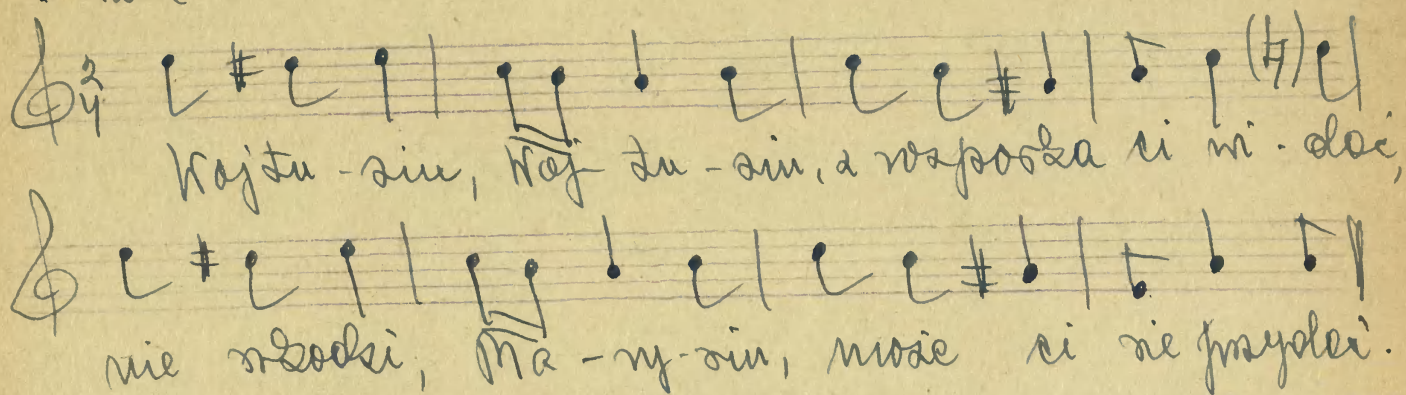 2/4
Wojtu - siu, Woj - tu - siu, a rozporka ci wi - dać,
nie szkodzi, Ma - ry - siu, może ci sie przydać.